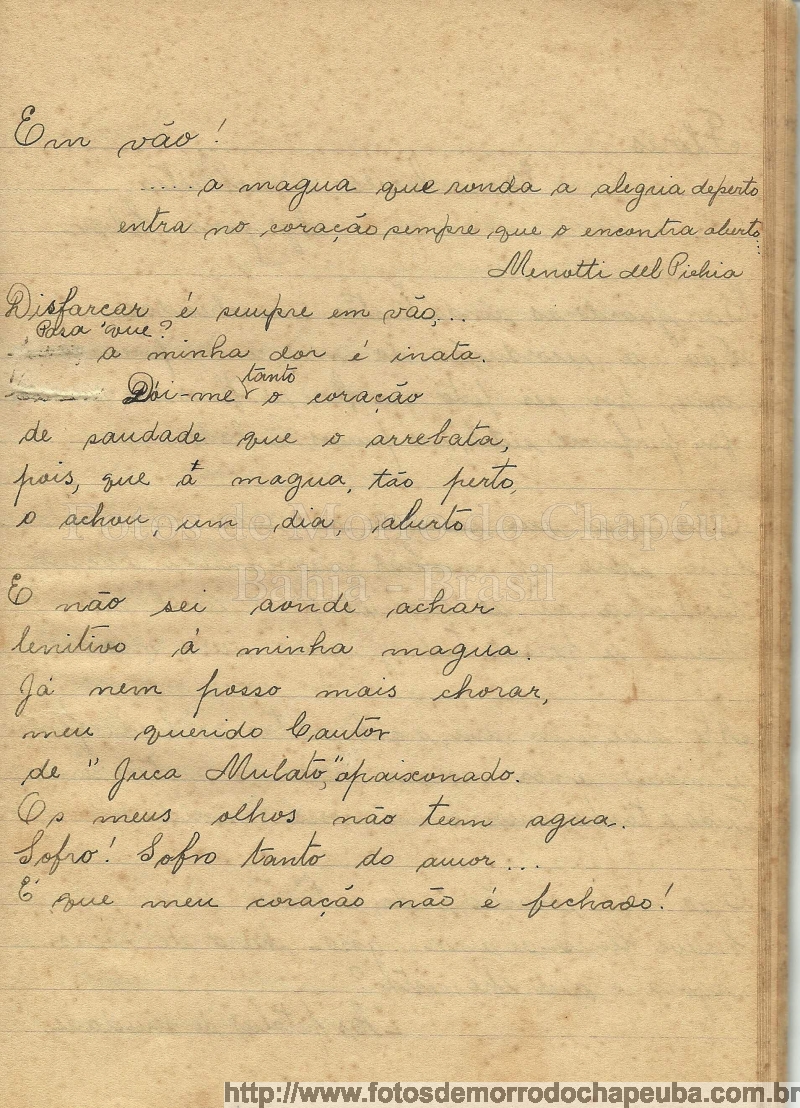 Em vão!
..... a magua que ronda a alegria deperto
entra no coração sempre que o encontra aberto...
Menotti del Pichia
Disfarcar é sempre em vão,...
Para que?
a minha dor é inata.
tanto
Dói-me o coração
de saudade que o arrebata,
pois, que a magua, tão perto,
o achou, um dia, aberto
Fotos de Morro do Chapéu
Bahia - Brasil
E não sei aonde achar
lenitivo á minha magua.
Já nem posso mais chorar,
meu querido Cantor
de "Juca Mulato," apaixonado.
Os meus olhos não teem agua.
Sofro! Sofro tanto do amor...
É que meu coração não é fechado!
http://www.fotosdemorrodochapeuba.com.br